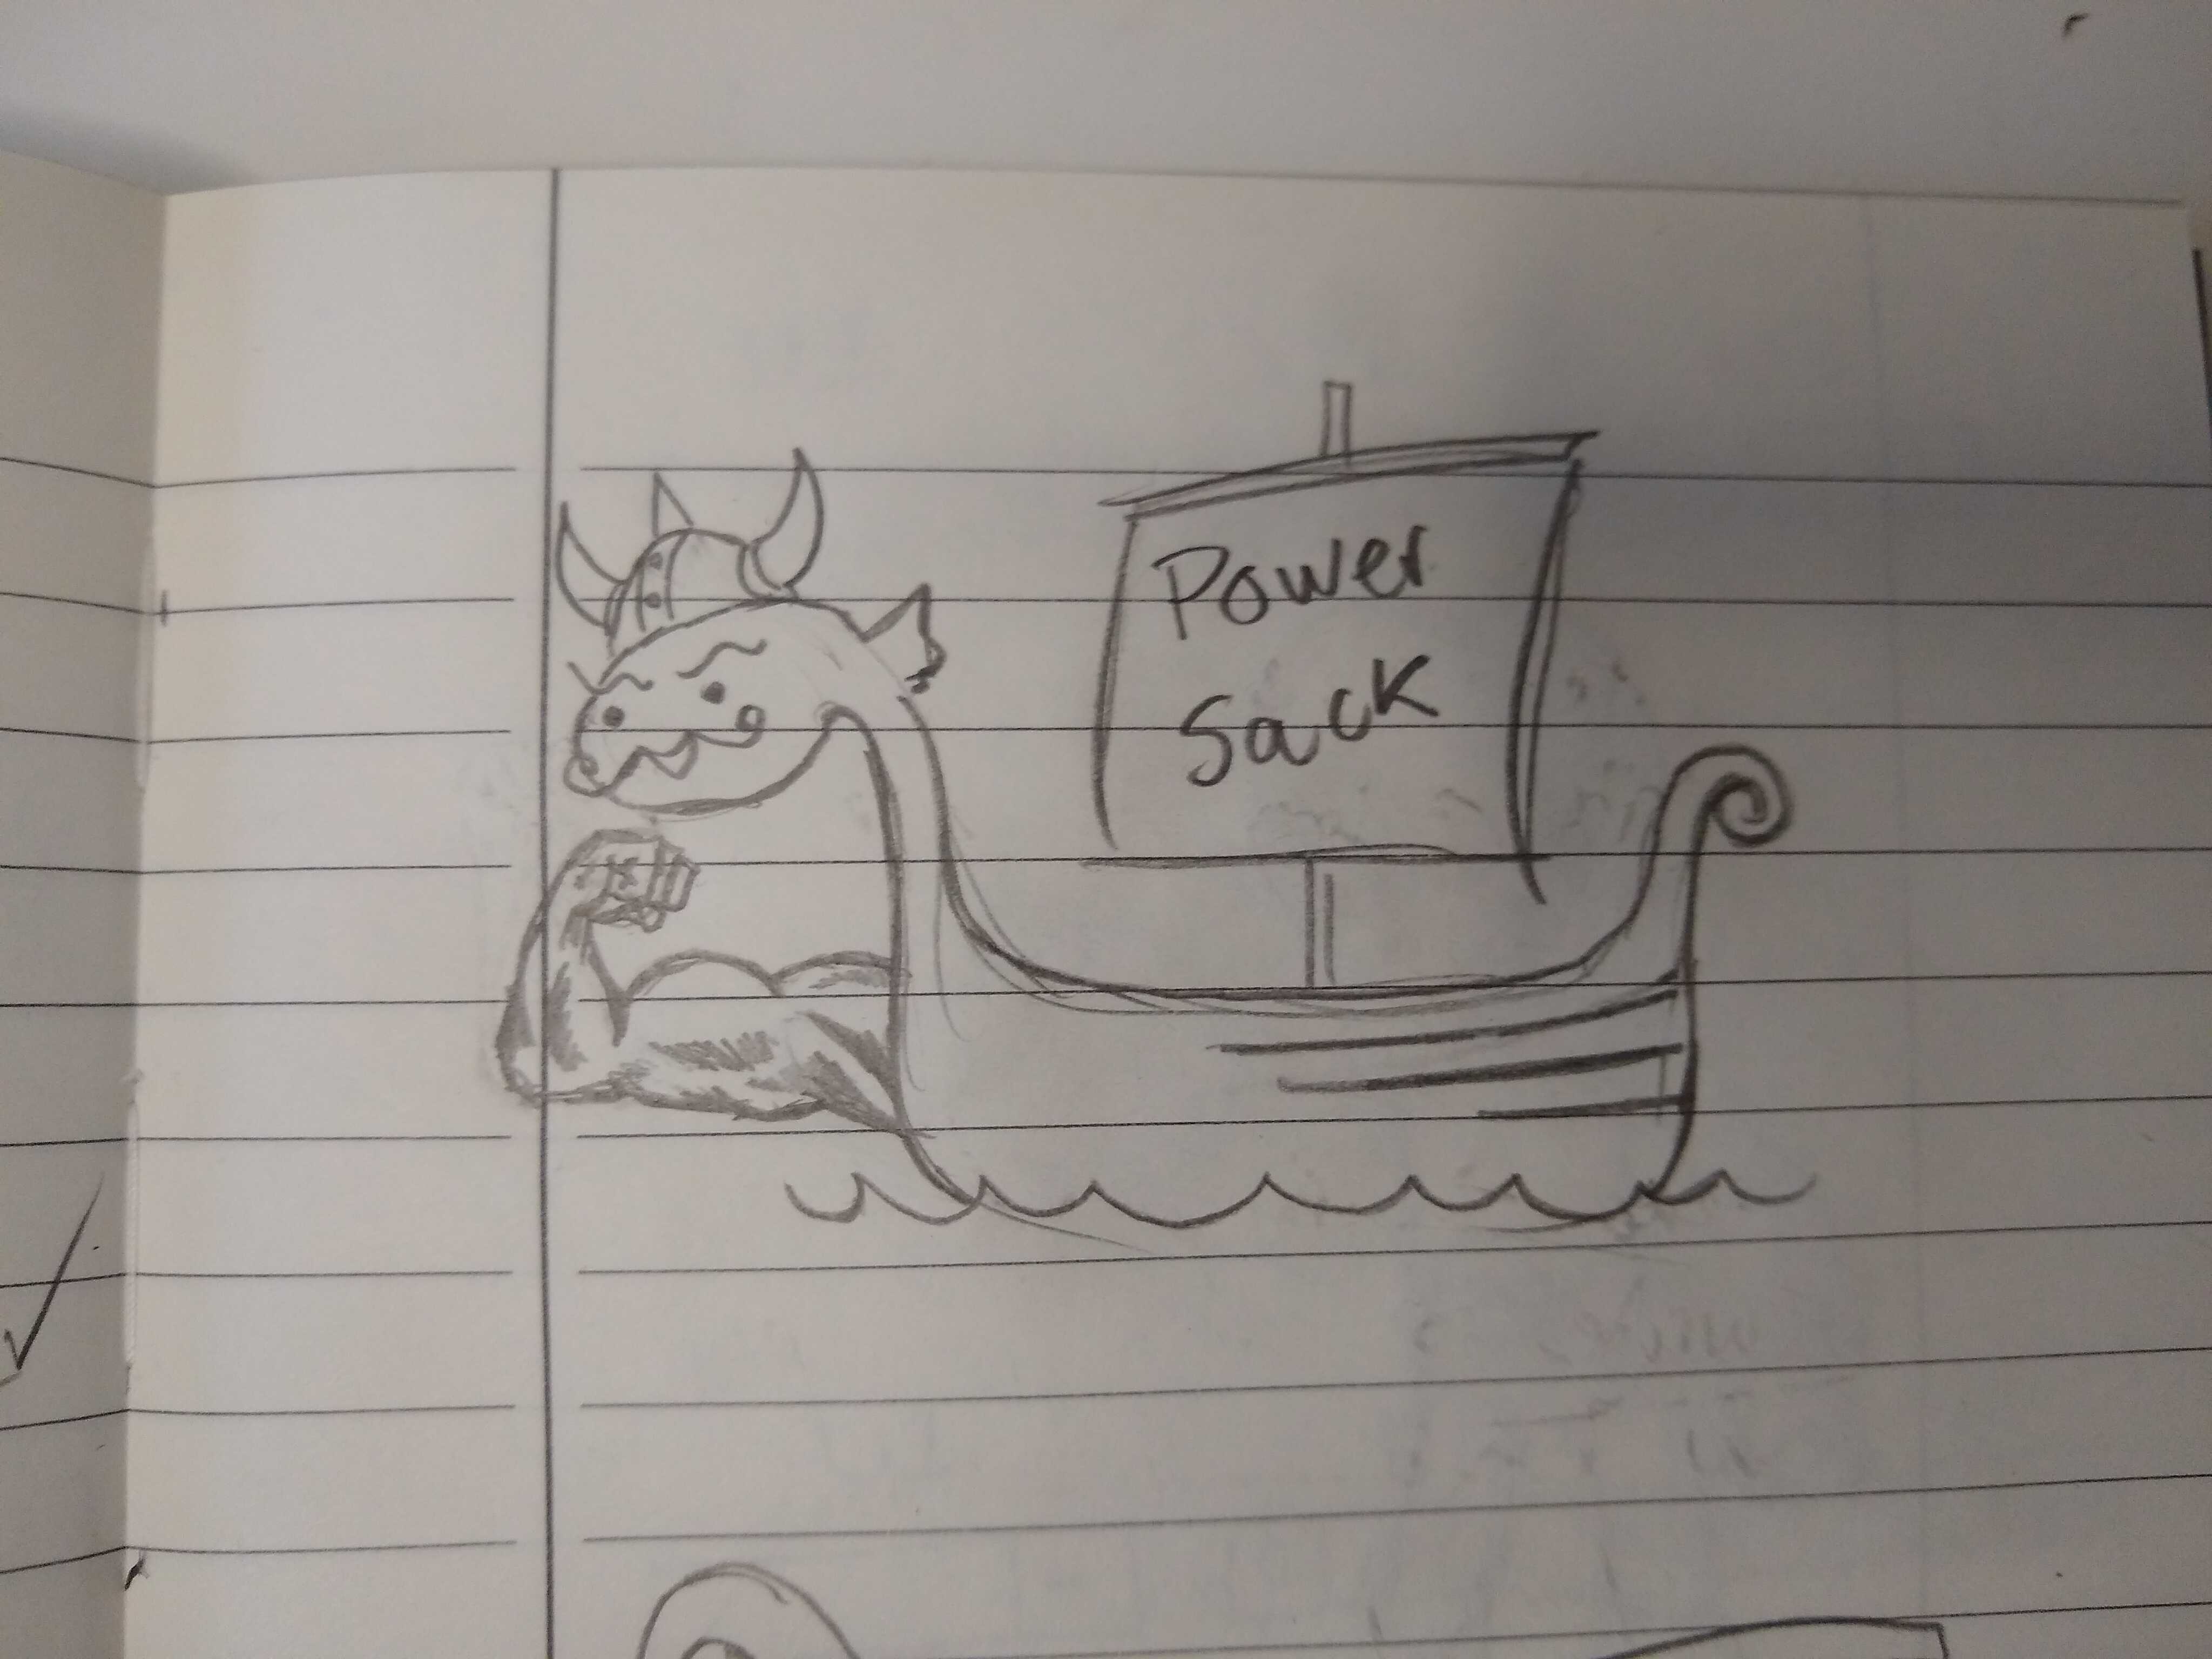 Power
Sack